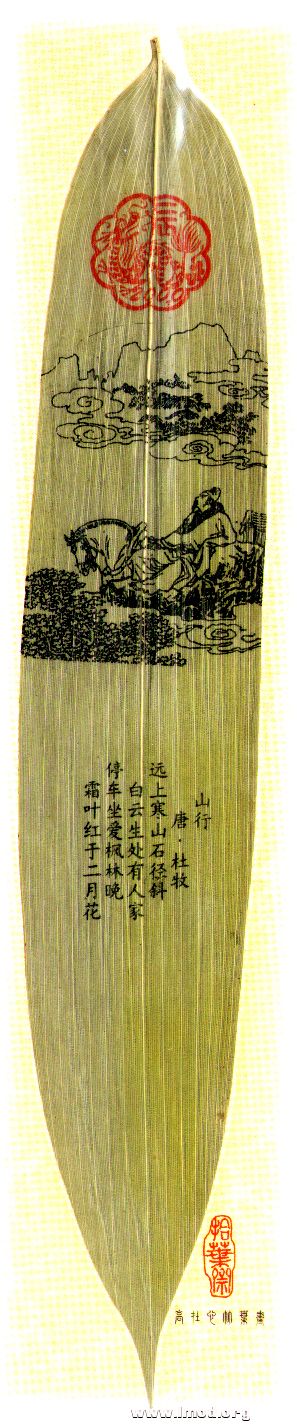 山行
唐·杜牧
远上寒山石径斜
白云生处有人家
停车坐爱枫林晚
霜叶红于二月花
拾葉斋
www.lmod.org